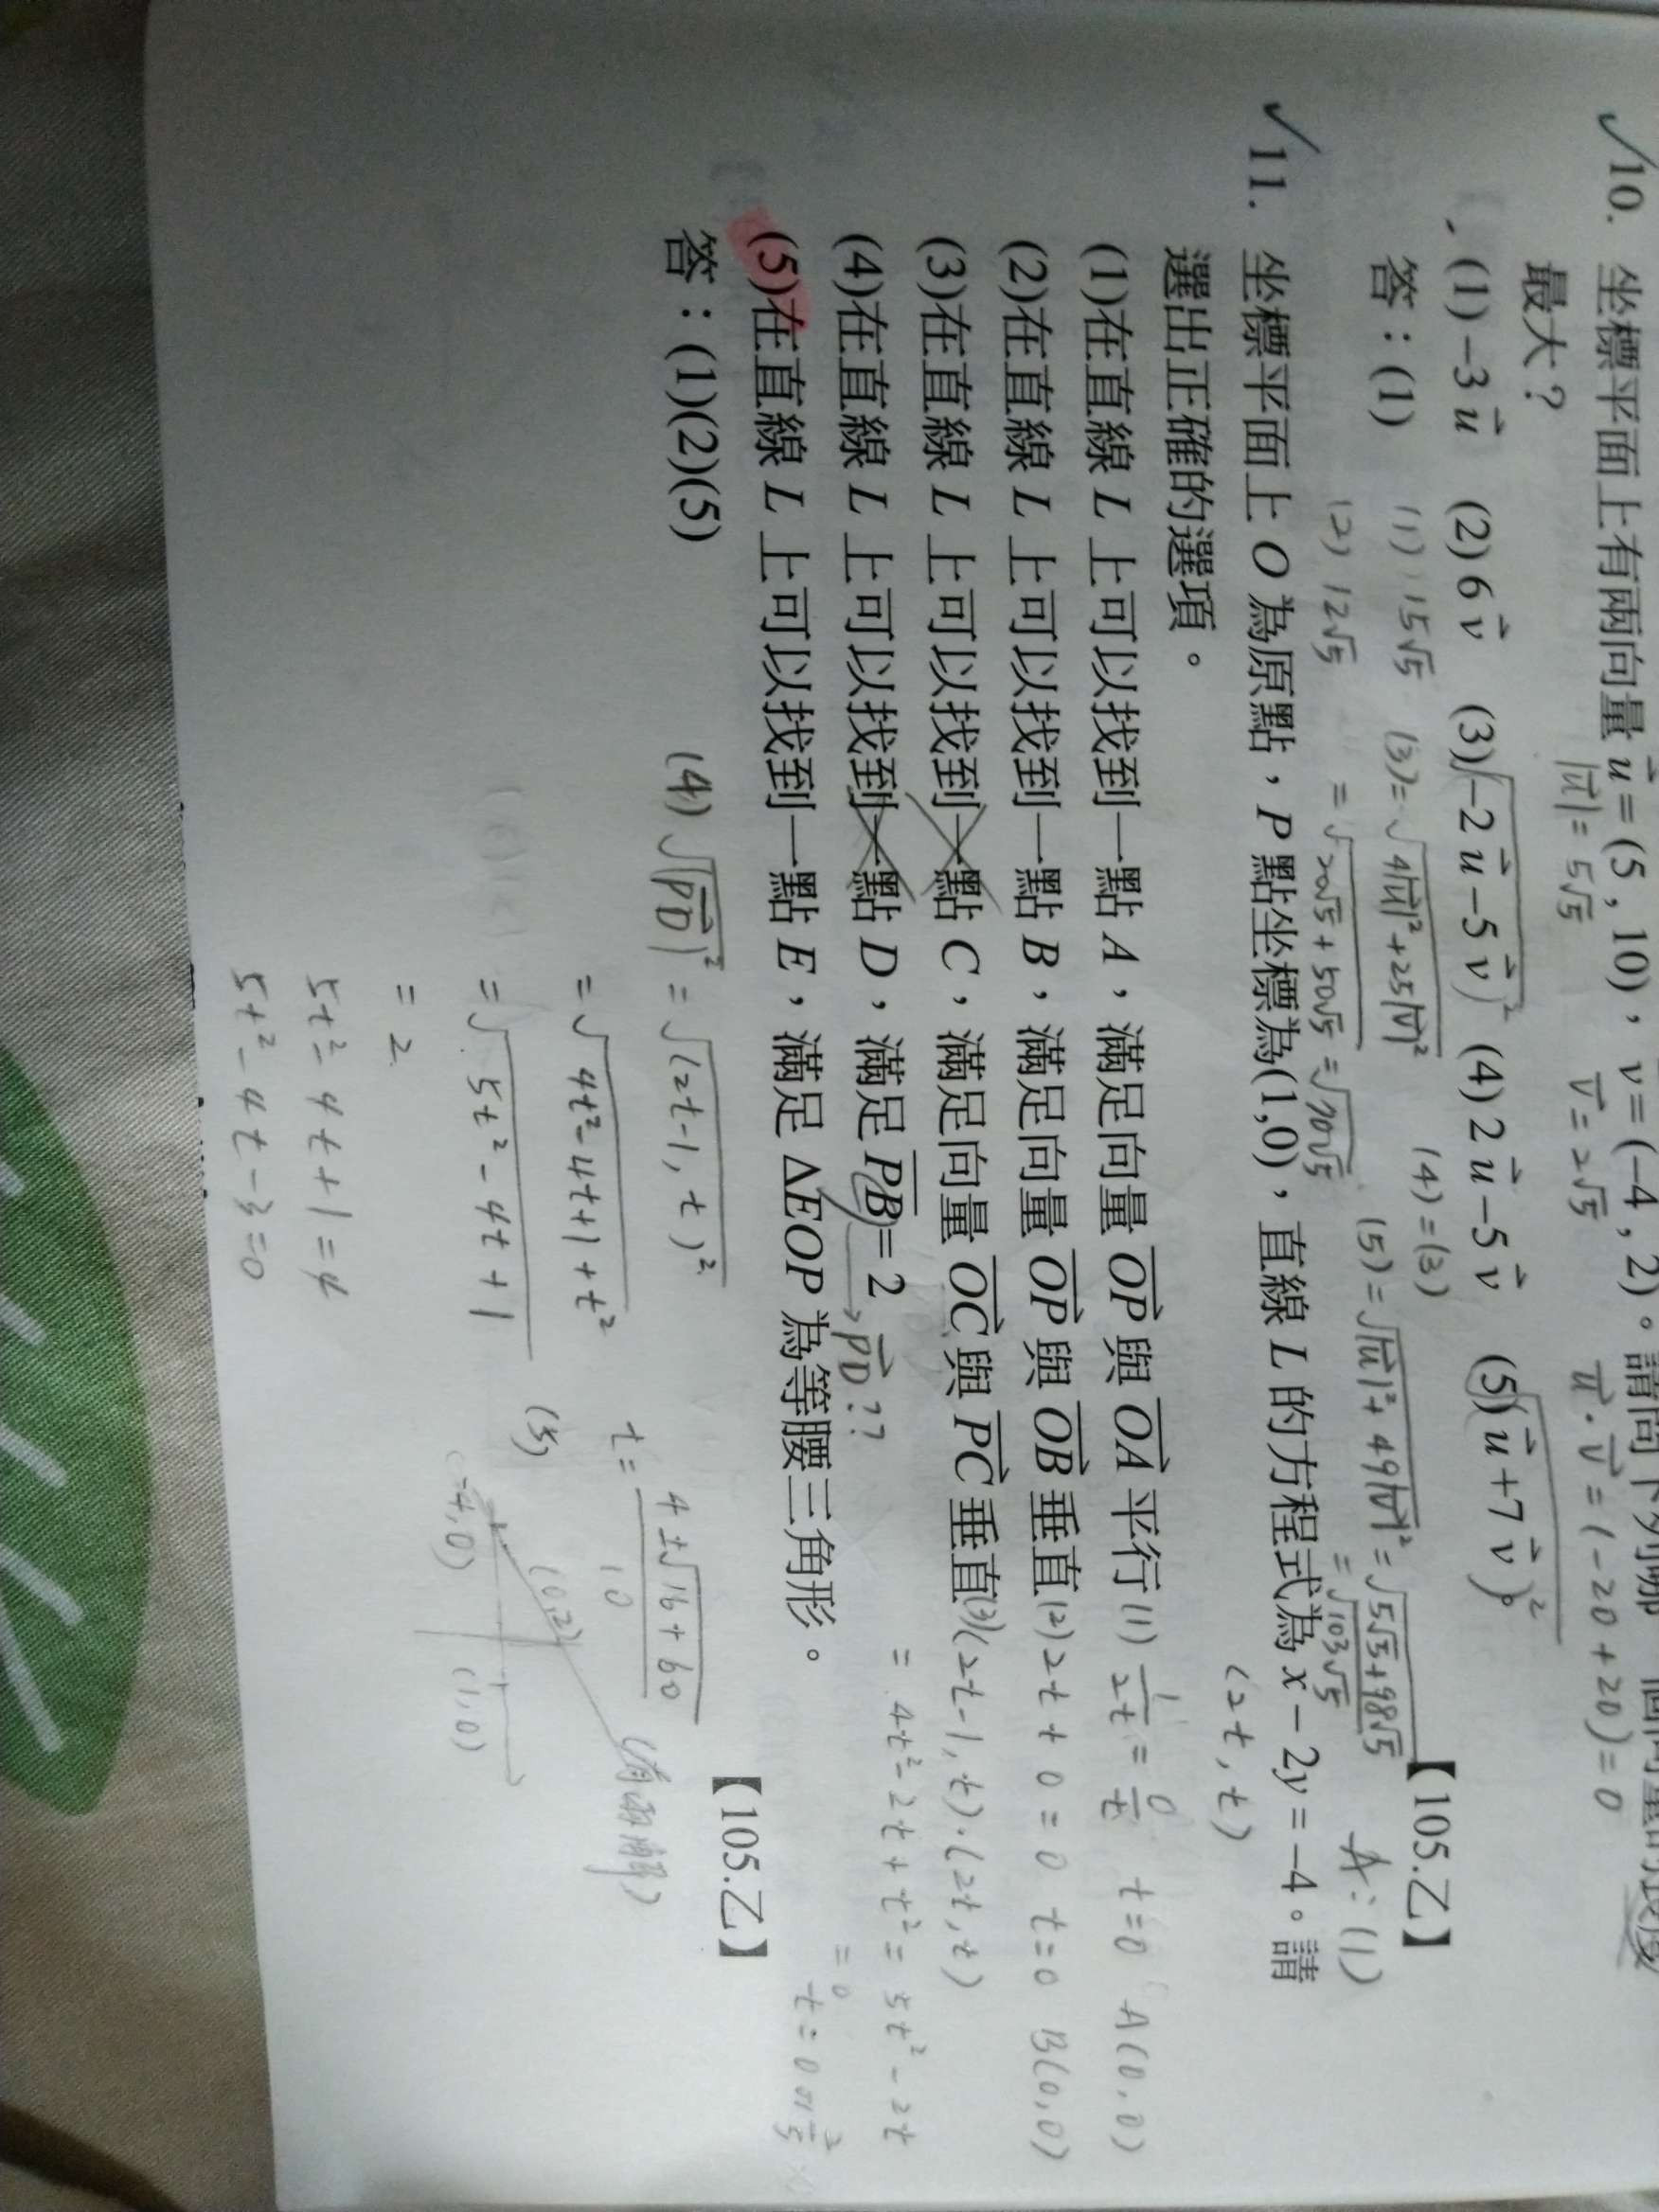 ✓10. 坐標平面上有兩向量 u⃗ = (5 , 10)，v⃗ = (−4 , 2)。請問下列哪一個向量的長度
|u⃗| = 5√5 v⃗ = 2√5 u⃗·v⃗ = (-20+20) = 0
最大？
(1) −3 u⃗ (2) 6 v⃗ (3) −2 u⃗ − 5 v⃗ (4) 2 u⃗ − 5 v⃗ (5) u⃗ + 7 v⃗。
答：(1) 【105.乙】
(1) 15√5 (3) = √4|u⃗|²+25|v⃗|² (4) = (3) (5) = √|u⃗|²+49|v⃗|² = √5√5+98√5
(2) 12√5 = √20√5+50√5 = √70√5 = √103√5 A:(1)
✓11. 坐標平面上 O 為原點，P 點坐標為(1,0)，直線 L 的方程式為 x − 2y = −4。請
(2t, t)
選出正確的選項。
(1)在直線 L 上可以找到一點 A，滿足向量 OP 與 OA 平行 (1) 1/2t = 0/t t=0 A(0,0)
(2)在直線 L 上可以找到一點 B，滿足向量 OP 與 OB 垂直 (2) 2t+0=0 t=0 B(0,0)
(3)在直線 L 上可以找到一點 C，滿足向量 OC 與 PC 垂直 (3) (2t-1, t)·(2t, t)
= 4t²-2t+t² = 5t²-2t
= 0
t = 0 or 2/5
(4)在直線 L 上可以找到一點 D，滿足 PB = 2 → PD??
(5)在直線 L 上可以找到一點 E，滿足 ΔEOP 為等腰三角形。
答：(1)(2)(5) 【105.乙】
(4) √|PD|² = √(2t-1, t)²
= √4t²-4t+1+t²
= √5t²-4t+1
= 2
5t²-4t+1=4
5t²-4t-3=0
t = 4±√16+60 / 10
(5)
(-4,0) (0,2) (1,0)